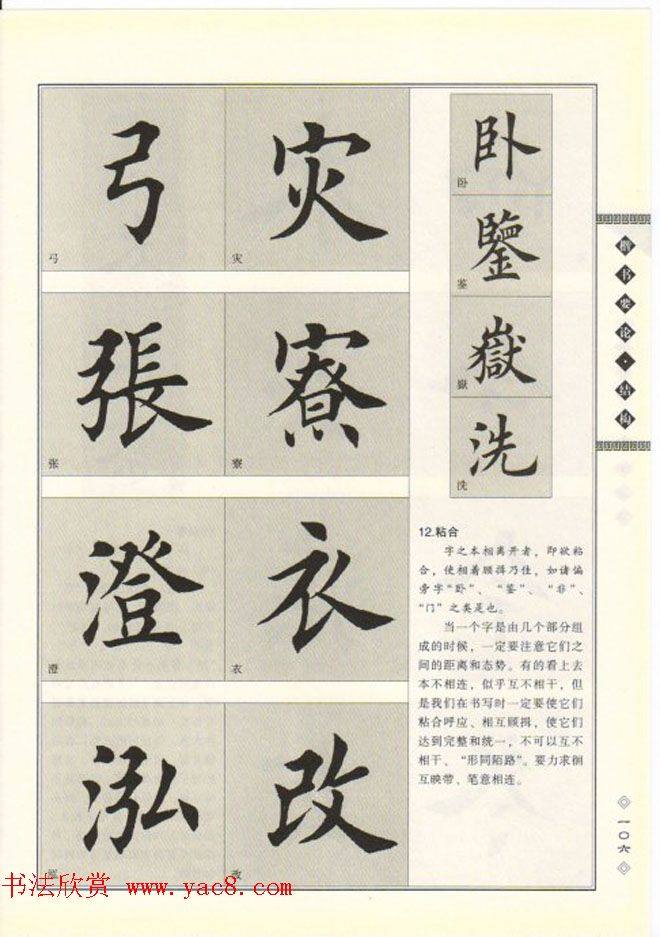 弓
弓
灾
灾
張
张
寮
寮
澄
澄
衣
衣
泓
改
改
卧
卧
鑒
鉴
嶽
嶽
洗
洗
12.粘合
字之本相离开者，即欲粘
合，使相着顾揖乃佳，如诸偏
旁字“卧”、“鉴”、“非”、
“门”之类是也。
当一个字是由几个部分组
成的时候，一定要注意它们之
间的距离和态势。有的看上去
本不相连，似乎互不相干，但
是我们在书写时一定要使它们
粘合呼应、相互顾揖，使它们
达到完整和统一，不可以互不
相干、“形同陌路”。要力求徊
互映带、笔意相连。
楷书要论·结构
一〇六
书法欣赏 www.yac8.com